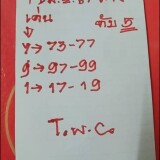 เด่น ดับ 5
7→73-77
9→97-99
1→17-19
T.W.C.